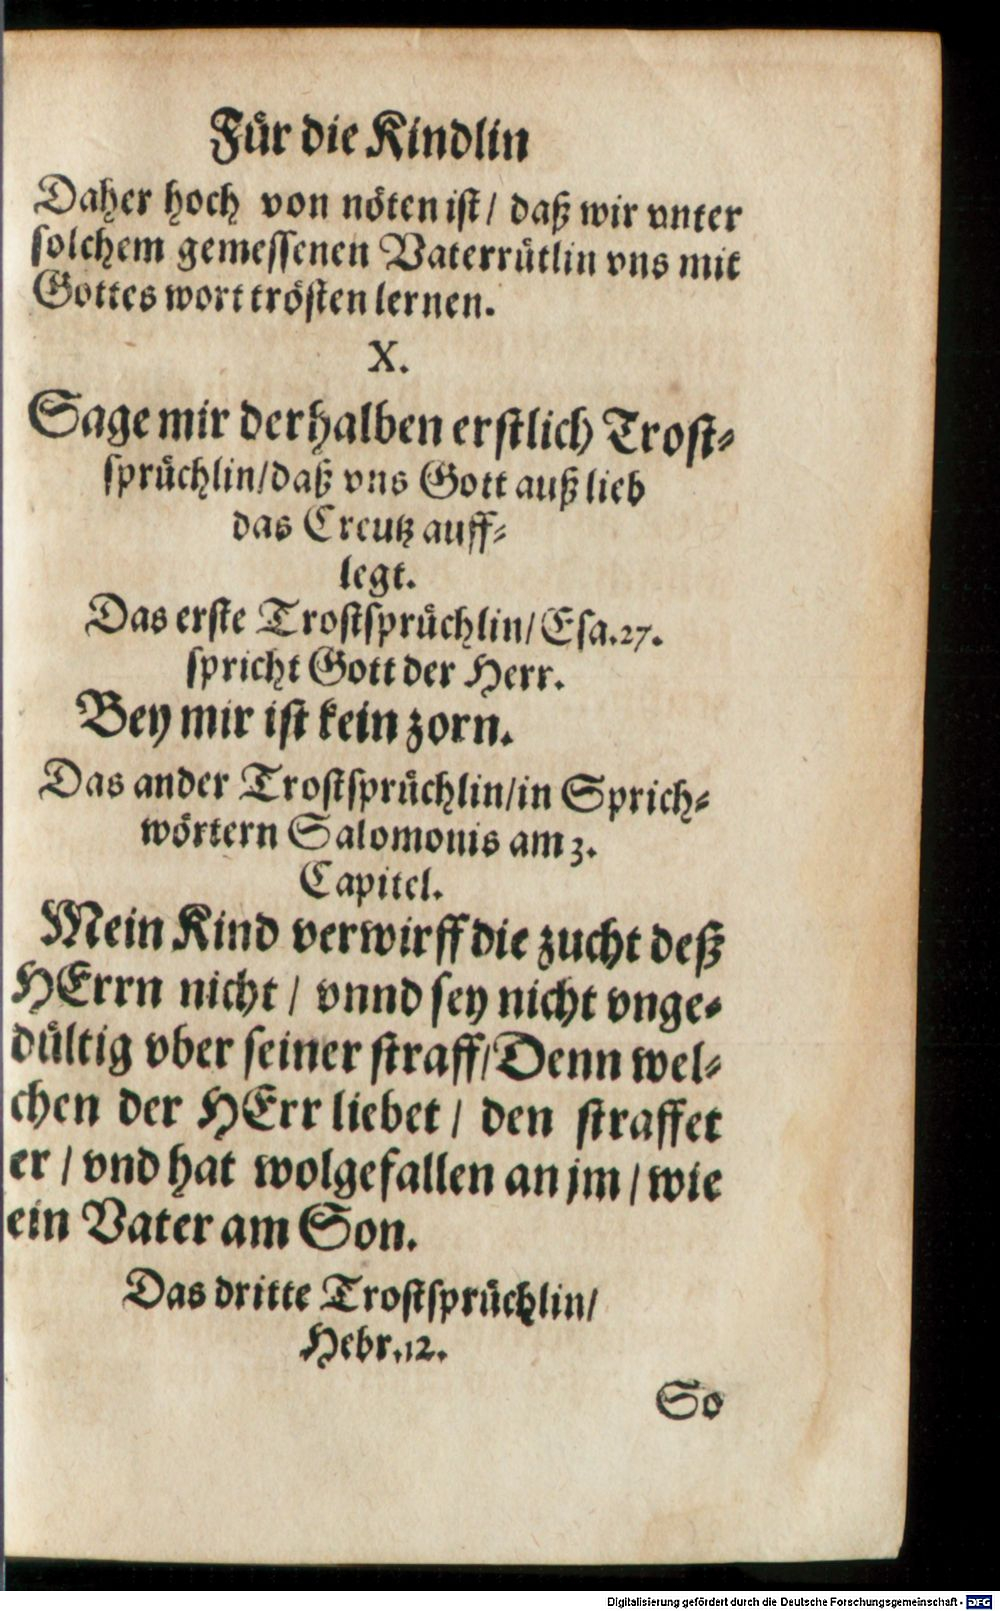 Für die Kindlin
Daher hoch von nöten ist / daß wir vnter
solchem gemessenen Vaterrütlin vns mit
Gottes wort trösten lernen.
X.
Sage mir derhalben erstlich Trost-
sprüchlin / daß vns Gott auß lieb
das Creutz auff-
legt.
Das erste Trostsprüchlin / Esa. 27.
spricht Gott der Herr.
Bey mir ist kein zorn.
Das ander Trostsprüchlin / in Sprich-
wörtern Salomonis am 3.
Capitel.
Mein Kind verwirff die zucht deß
HErrn nicht / vnnd sey nicht vnge-
dültig vber seiner straff / Denn wel-
chen der HErr liebet / den straffet
er / vnd hat wolgefallen an jm / wie
ein Vater am Son.
Das dritte Trostsprüchlin /
Hebr. 12.
So
Digitalisierung gefördert durch die Deutsche Forschungsgemeinschaft - DFG